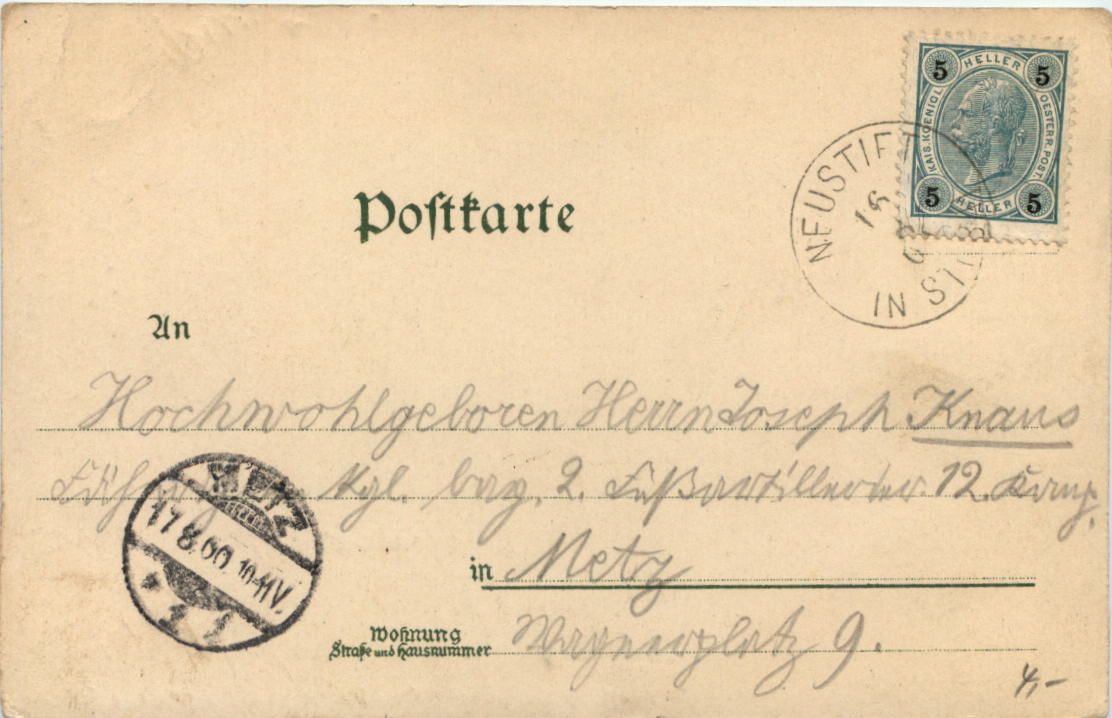 5 HELLER 5
KAIS. KOENIGL. OESTERR. POST.
5 HELLER 5
NEUSTIFT
16
IN
Postkarte
An
Hochwohlgeboren Herrn Joseph Knaus
Kgl. bay. 2. Fußartillerie 12. Komp.
METZ
17 8.00 10-11V.
* 1
in Metz
Wohnung
Straße und Hausnummer
9.
4,-